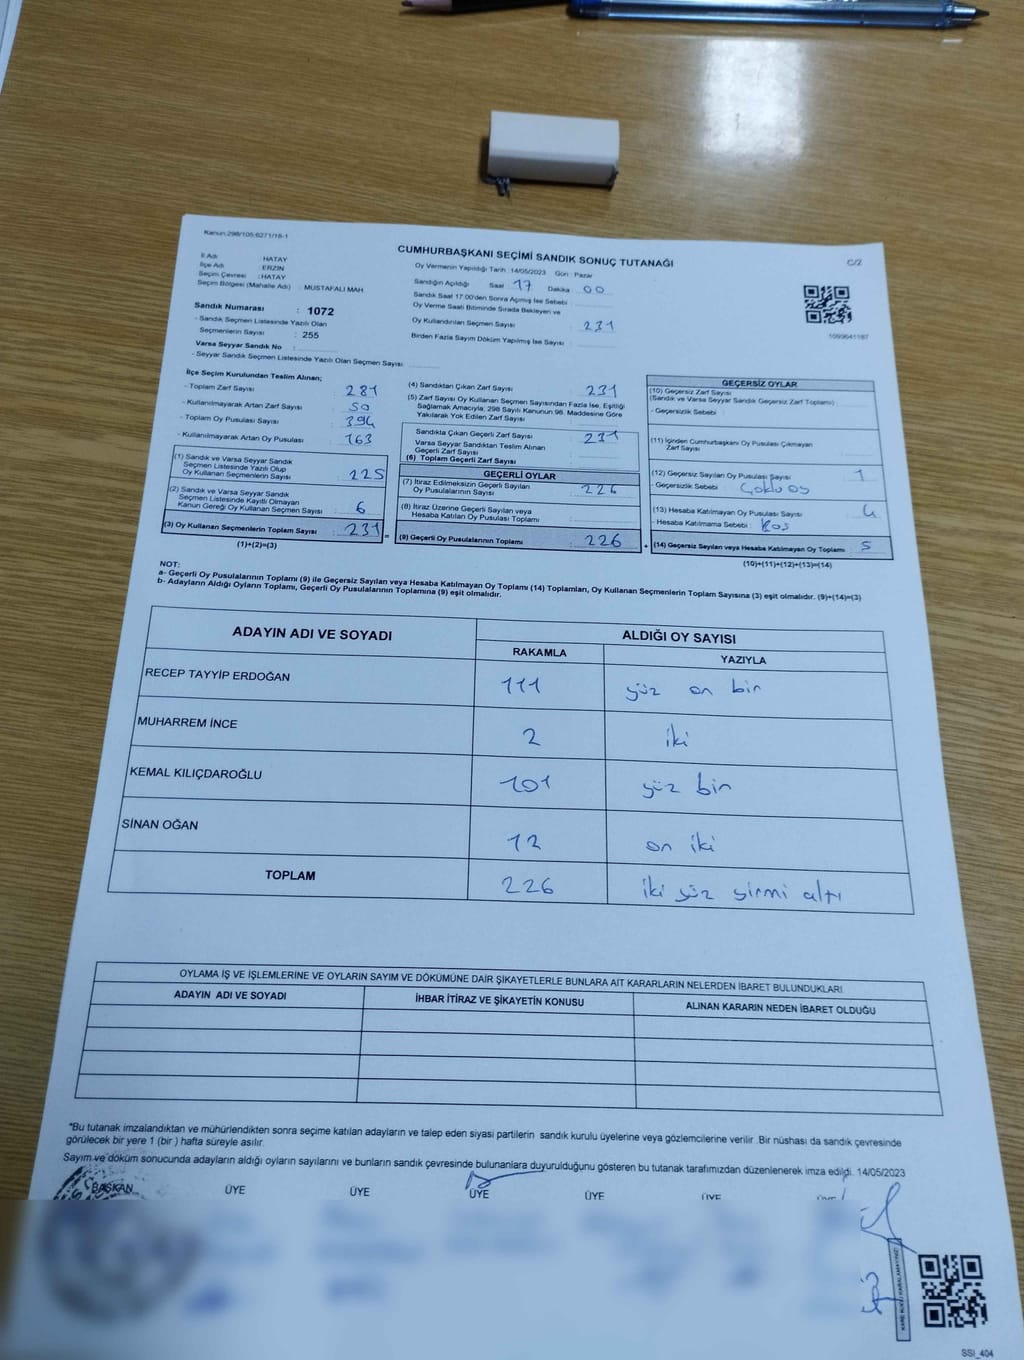 Kanun:298/105;6271/18-1
CUMHURBAŞKANI SEÇİMİ SANDIK SONUÇ TUTANAĞI
C/2
İl Adı : HATAY
İlçe Adı : ERZİN
Seçim Çevresi : HATAY
Seçim Bölgesi (Mahalle Adı) : MUSTAFALI MAH
Sandık Numarası : 1072
- Sandık Seçmen Listesinde Yazılı Olan
Seçmenlerin Sayısı : 255
Varsa Seyyar Sandık No :
- Seyyar Sandık Seçmen Listesinde Yazılı Olan Seçmen Sayısı :
Oy Vermenin Yapıldığı Tarih :14/05/2023 Gün : Pazar
Sandığın Açıldığı Saat 17 Dakika 00
Sandık Saat 17.00'den Sonra Açılmış İse Sebebi :
Oy Verme Saati Bitiminde Sırada Bekleyen ve
Oy Kullandırılan Seçmen Sayısı : 231
Birden Fazla Sayım Döküm Yapılmış İse Sayısı :
1099641187
İlçe Seçim Kurulundan Teslim Alınan;
- Toplam Zarf Sayısı : 281
- Kullanılmayarak Artan Zarf Sayısı : 50
- Toplam Oy Pusulası Sayısı : 394
- Kullanılmayarak Artan Oy Pusulası : 163
(1) Sandık ve Varsa Seyyar Sandık
Seçmen Listesinde Yazılı Olup
Oy Kullanan Seçmenlerin Sayısı : 225
(2) Sandık ve Varsa Seyyar Sandık
Seçmen Listesinde Kayıtlı Olmayan
Kanun Gereği Oy Kullanan Seçmen Sayısı : 6
(3) Oy Kullanan Seçmenlerin Toplam Sayısı : 231 =
(1)+(2)=(3)
(4) Sandıktan Çıkan Zarf Sayısı : 231
(5) Zarf Sayısı Oy Kullanan Seçmen Sayısından Fazla İse, Eşitliği
Sağlamak Amacıyla; 298 Sayılı Kanunun 98. Maddesine Göre
Yakılarak Yok Edilen Zarf Sayısı :
Sandıkta Çıkan Geçerli Zarf Sayısı : 231
Varsa Seyyar Sandıktan Teslim Alınan
Geçerli Zarf Sayısı :
(6) Toplam Geçerli Zarf Sayısı :
GEÇERLİ OYLAR
(7) İtiraz Edilmeksizin Geçerli Sayılan
Oy Pusulalarının Sayısı : 226
(8) İtiraz Üzerine Geçerli Sayılan veya
Hesaba Katılan Oy Pusulası Toplamı :
(9) Geçerli Oy Pusulalarının Toplamı : 226 +
GEÇERSİZ OYLAR
(10) Geçersiz Zarf Sayısı
(Sandık ve Varsa Seyyar Sandık Geçersiz Zarf Toplamı) :
- Geçersizlik Sebebi :
(11) İçinden Cumhurbaşkanı Oy Pusulası Çıkmayan
Zarf Sayısı :
(12) Geçersiz Sayılan Oy Pusulası Sayısı : 1
- Geçersizlik Sebebi : Çoklu oy
(13) Hesaba Katılmayan Oy Pusulası Sayısı : 4
- Hesaba Katılmama Sebebi : Boş
(14) Geçersiz Sayılan veya Hesaba Katılmayan Oy Toplamı : 5
(10)+(11)+(12)+(13)=(14)
NOT:
a- Geçerli Oy Pusulalarının Toplamı (9) ile Geçersiz Sayılan veya Hesaba Katılmayan Oy Toplamı (14) Toplamları, Oy Kullanan Seçmenlerin Toplam Sayısına (3) eşit olmalıdır. (9)+(14)=(3)
b- Adayların Aldığı Oyların Toplamı, Geçerli Oy Pusulalarının Toplamına (9) eşit olmalıdır.
ADAYIN ADI VE SOYADI ALDIĞI OY SAYISI
RAKAMLA YAZIYLA
RECEP TAYYİP ERDOĞAN 111 yüz on bir
MUHARREM İNCE 2 iki
KEMAL KILIÇDAROĞLU 101 yüz bir
SİNAN OĞAN 12 on iki
TOPLAM 226 iki yüz yirmi altı
OYLAMA İŞ VE İŞLEMLERİNE VE OYLARIN SAYIM VE DÖKÜMÜNE DAİR ŞİKAYETLERLE BUNLARA AİT KARARLARIN NELERDEN İBARET BULUNDUKLARI
ADAYIN ADI VE SOYADI İHBAR İTİRAZ VE ŞİKAYETİN KONUSU ALINAN KARARIN NEDEN İBARET OLDUĞU
*Bu tutanak imzalandıktan ve mühürlendikten sonra seçime katılan adayların ve talep eden siyasi partilerin sandık kurulu üyelerine veya gözlemcilerine verilir .Bir nüshası da sandık çevresinde
görülecek bir yere 1 (bir ) hafta süreyle asılır.
Sayım ve döküm sonucunda adayların aldığı oyların sayılarını ve bunların sandık çevresinde bulunanlara duyurulduğunu gösteren bu tutanak tarafımızdan düzenlenerek imza edildi. 14/05/2023
BAŞKAN ÜYE ÜYE ÜYE ÜYE ÜYE
SSI_404